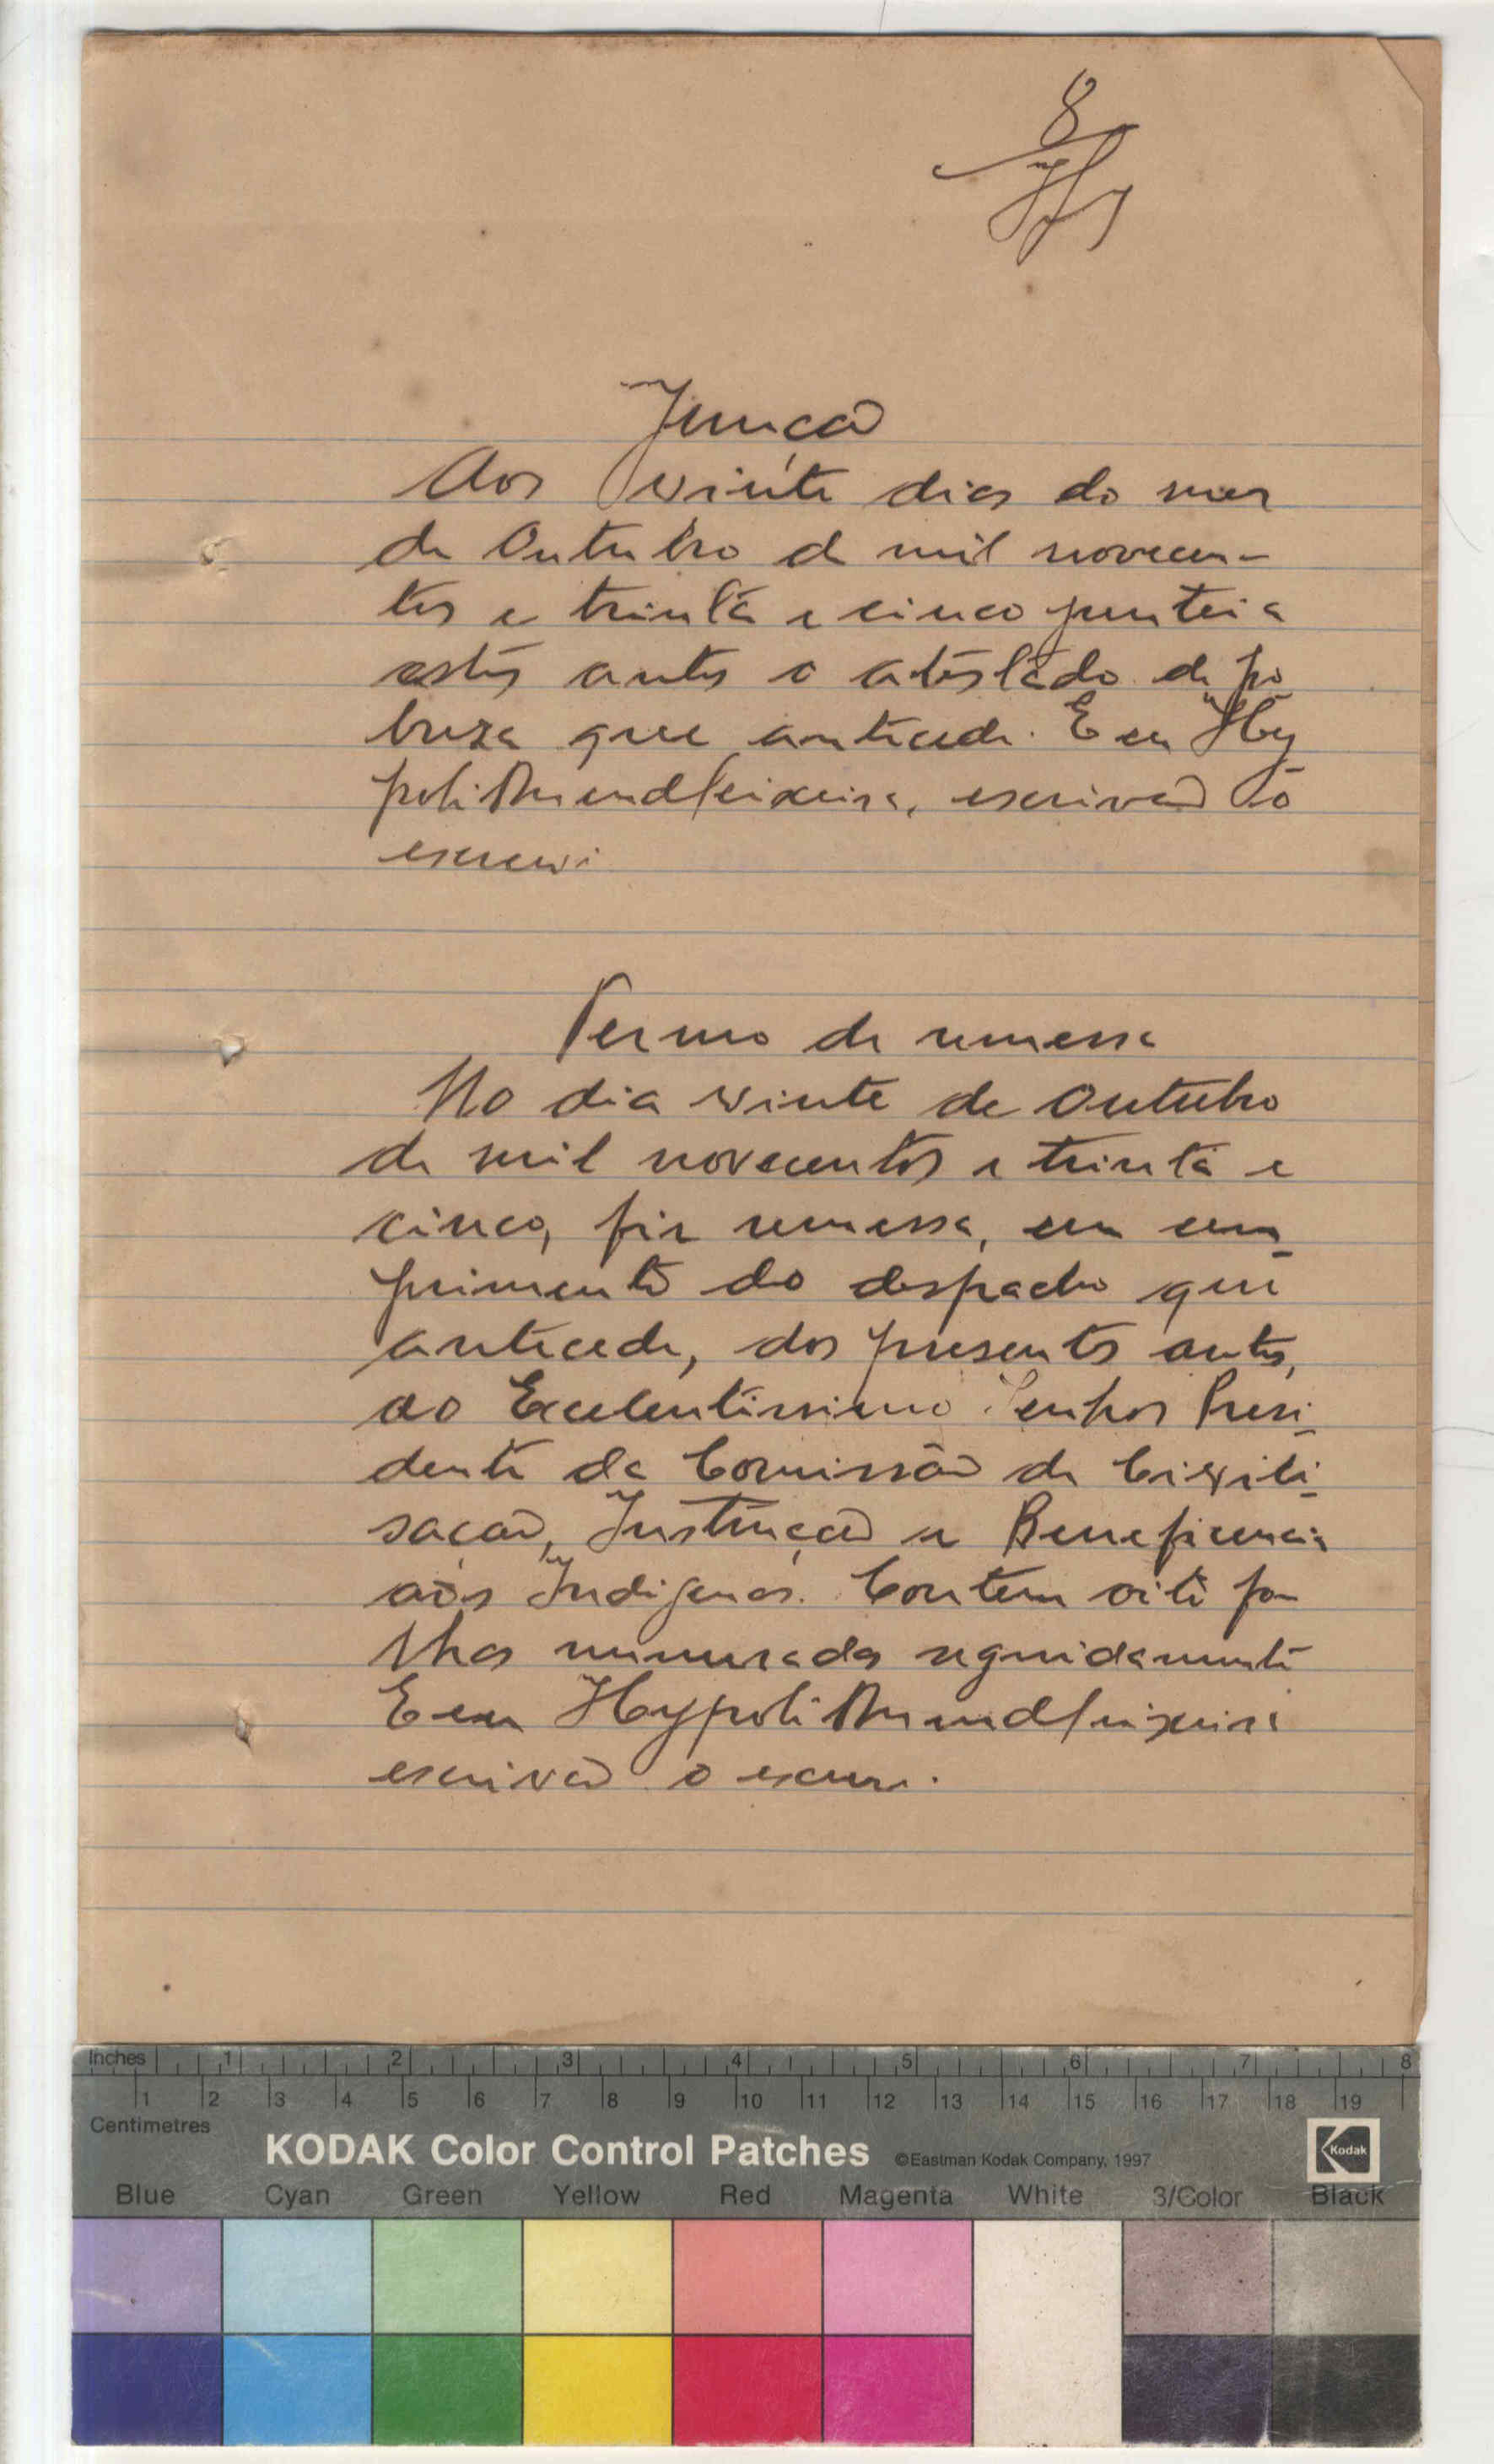 8
Junção
Aos vinte dias do mez
de Outubro de mil novecen-
tos e trinta e cinco juntei a
estes autos o atestado de po
breza que antecede. E eu Hy
polit Teixeira, escrivão o
escrevi
Termo de remessa
No dia vinte de Outubro
de mil novecentos e trinta e
cinco, fiz remessa, em cum-
primento do despacho que
antecede, dos presentes autos,
ao Excelentissimo Senhor Presi-
dente da Comissão de Civili-
sação, Instrução e Beneficencia
aos Indigenas. Contem oito fo-
lhas numeradas seguidamente
E eu Hypolit Teixeira
escrivão o escrevi.
Inches 1 2 3 4 5 6 7 8
1 2 3 4 5 6 7 8 9 10 11 12 13 14 15 16 17 18 19
Centimetres
KODAK Color Control Patches ©Eastman Kodak Company, 1997 Kodak
Blue Cyan Green Yellow Red Magenta White 3/Color Black